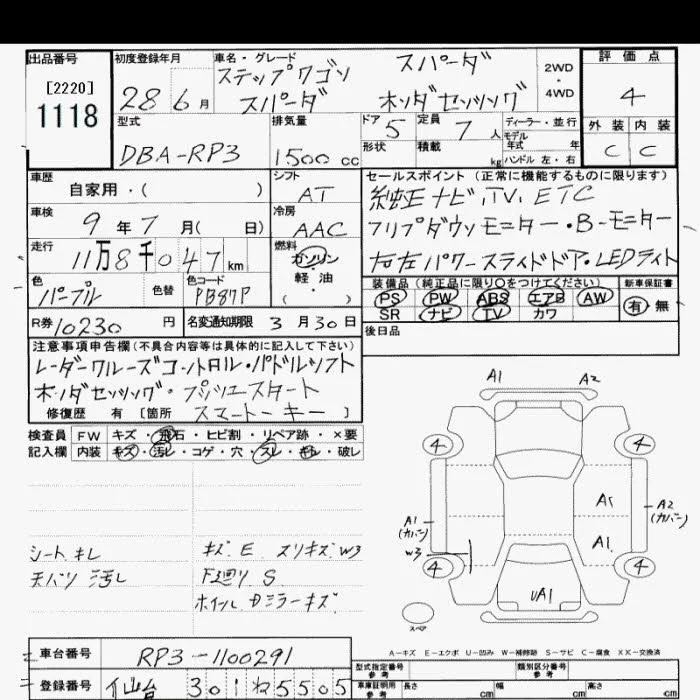 出品番号
[2220]
1118
初度登録年月
28 6 月
車名・グレード
ステップワゴン スパーダ
スパーダ ホンダセンシング
2WD
・
4WD
評価点
4
外装 内装
C C
型式
DBA-RP3
排気量
1500 cc
ドア 5
形状
定員 7 人
積載 kg
ディーラー・並行
モデル年式 年式
ハンドル 左・右
車歴
自家用・( )
シフト
AT
車検
9 年 7 月( 日)
冷房
AAC
走行
11万8千047 km
燃料
ガソリン
軽油
( ・ )
色
パープル
色替
色コード
PB87P
R券 10230 円
名変通知期限 3月30日
セールスポイント (正常に機能するものに限ります)
純正ナビ,TV,ETC
フリップダウンモニター・B-モニター
右左パワースライドドア・LEDライト
装備品 (純正品に限り○をつけてください)
PS PW ABS エアB AW
SR ナビ TV カワ
新車保証書
有 無
後日品
注意事項申告欄(不具合内容等は具体的に記入して下さい)
レーダークルーズコントロール・パドルシフト
ホンダセンシング・プッシュスタート
スマートキー
修復歴 有 [箇所 ]
検査員記入欄
FW キズ・飛石・ヒビ割・リペア跡・×要
内装 キズ・汚レ・コゲ・穴・スレ・キレ・破レ
シート キレ
天バリ 汚レ
キズ E スリキズ W3
下廻り S
ホイール ドミラーキズ
A1 A2
4 4
A1
A1(カバン)
A2(カバン)
W3
A1
4 4
UA1
スペア
A-キズ E-エクボ U-凹み W-補修跡 S-サビ C-腐食 XX-交換済
車台番号
RP3-1100291
登録番号
仙台 301ね5505
型式指定番号 参考
類別区分番号 参考
車庫証明用 参考
長さ cm
幅 cm
高さ cm